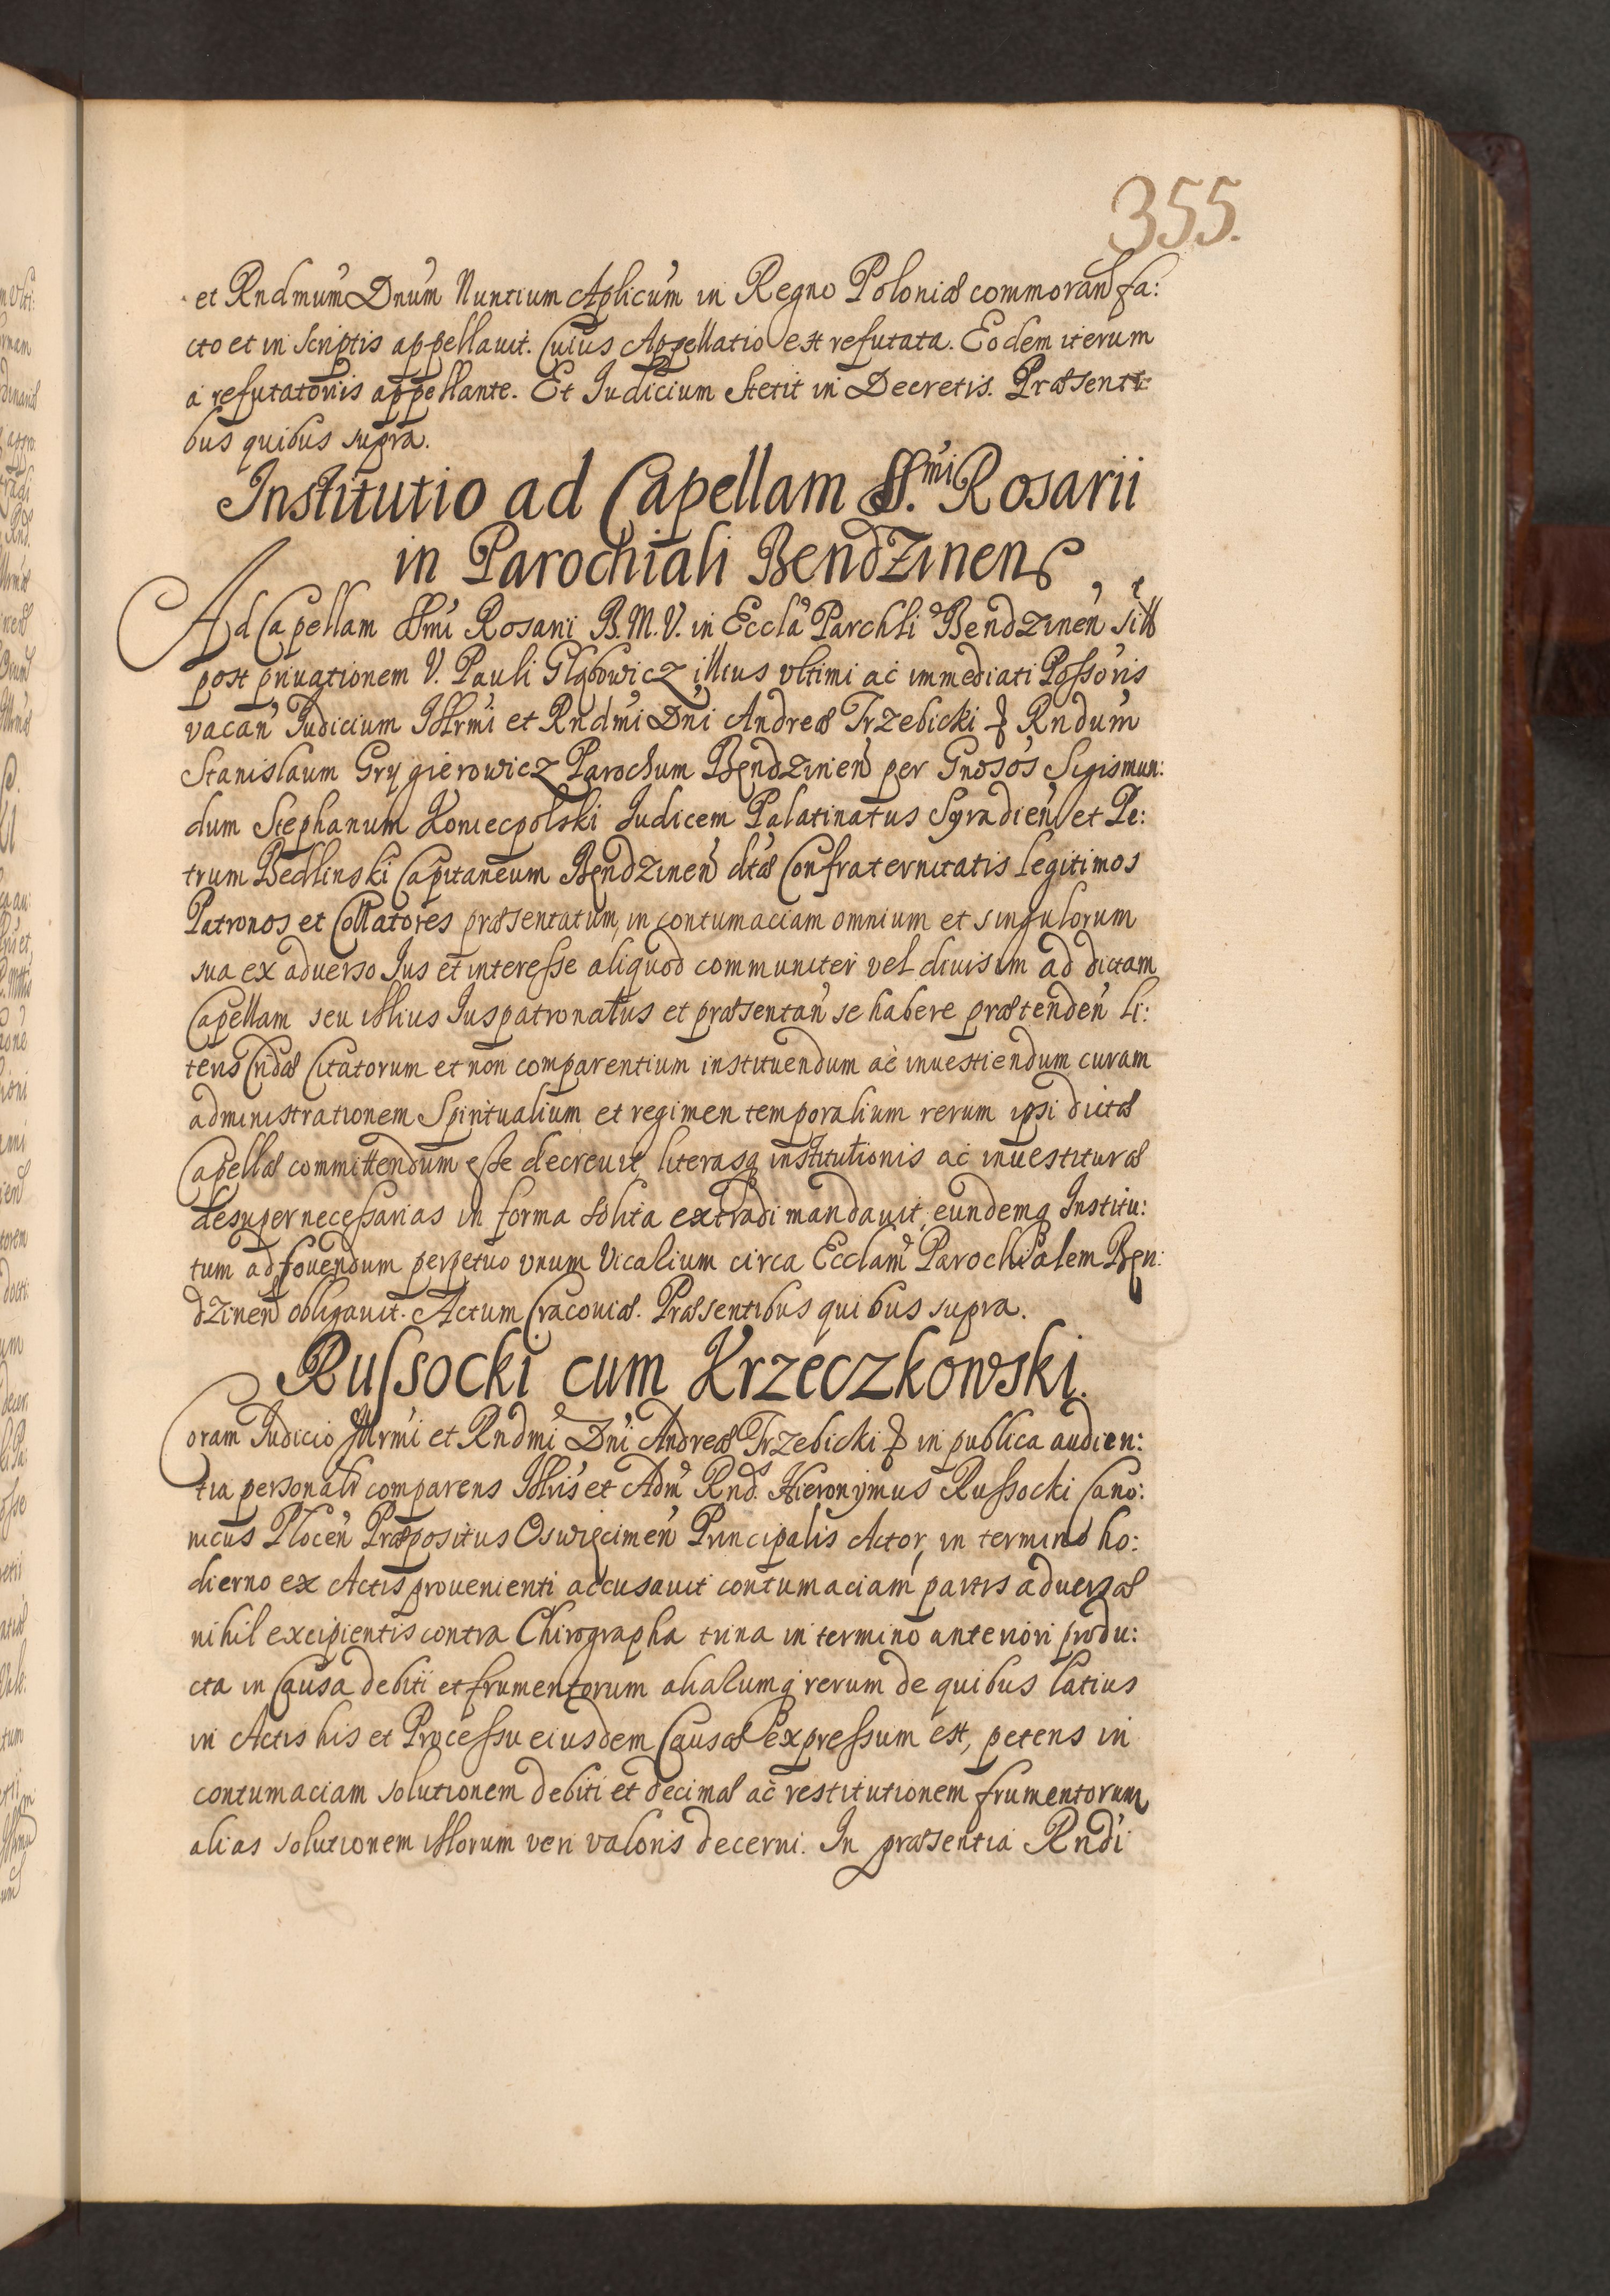 355.
et Rndmum Dnum Nuntium Aplicum in Regno Poloniæ commoran fa:
cto et in scriptis appellauit. Cuius Appellatio est refutata. Eodem iterum
a refutatoriis appellante. Et Iudicium stetit in Decretis. Præsenti
bus quibus supra.
Institutio ad Capellam SS.mi Rosarii
in Parochiali Bendzinens
Ad Capellam SSmi Rosarii B. M. V. in Eccla Parchli Bendzinen
post priuationem V. Pauli Glębowicz illius vltimi ac immediati Possoris
vacan Iudicium Illrmi et Rndmi Dni Andreæ Trzebicki Rndum
Stanislaum Grygierowicz Parochum Bendzinen per Gnosos Sigismun:
dum Stephanum Koniecpolski Iudicem Palatinatus Syradien et Pe:
trum Bedlinski Capitaneum Bendzinen dtæ Confraternitatis legitimos
Patronos et Collatores præsentatum, in contumaciam omnium et singulorum
sua ex aduerso Ius et interesse aliquod communiter vel diuisim ad dictam
Capellam seu illius Iuspatronatus et præsentan se habere prætenden li:
teris Cridæ Citatorum et non comparentium instituendum ac inuestiendum curam
administrationem Spiritualium et regimen temporalium rerum ipsi dictæ
Capellæ committendum esse decreuit, literasq institutionis ac inuestituræ
desuper necessarias in forma solita extradi mandauit, eundemq Institu:
tum ad fouendum perpetuo vnum Vicarium circa Ecclam Parochialem Ben:
dzinen obligauit. Actum Cracouiæ. Præsentibus quibus supra.
Russocki cum Krzeczkowski.
Coram Iudicio Illrmi et Rndmi Dni Andreæ Trzebicki in publica audien:
tia personalr comparens Illris et Adm Rnds Hieronymus Russocki Cano:
nicus Plocen Præpositus Oswięcimen Principalis Actor, in termino ho:
dierno ex Actis prouenienti accusauit contumaciam partis aduersæ
nihil excipientis contra Chirographa trina in termino anteriori produ:
cta in Causa debiti et frumentorum aliarumq rerum de quibus latius
in Actis his et Processu eiusdem Causæ expressum est, petens in
contumaciam solutionem debiti et decimæ ac restitutionem frumentorum
alias solutionem illorum veri valoris decerni. In præsentia Rndi